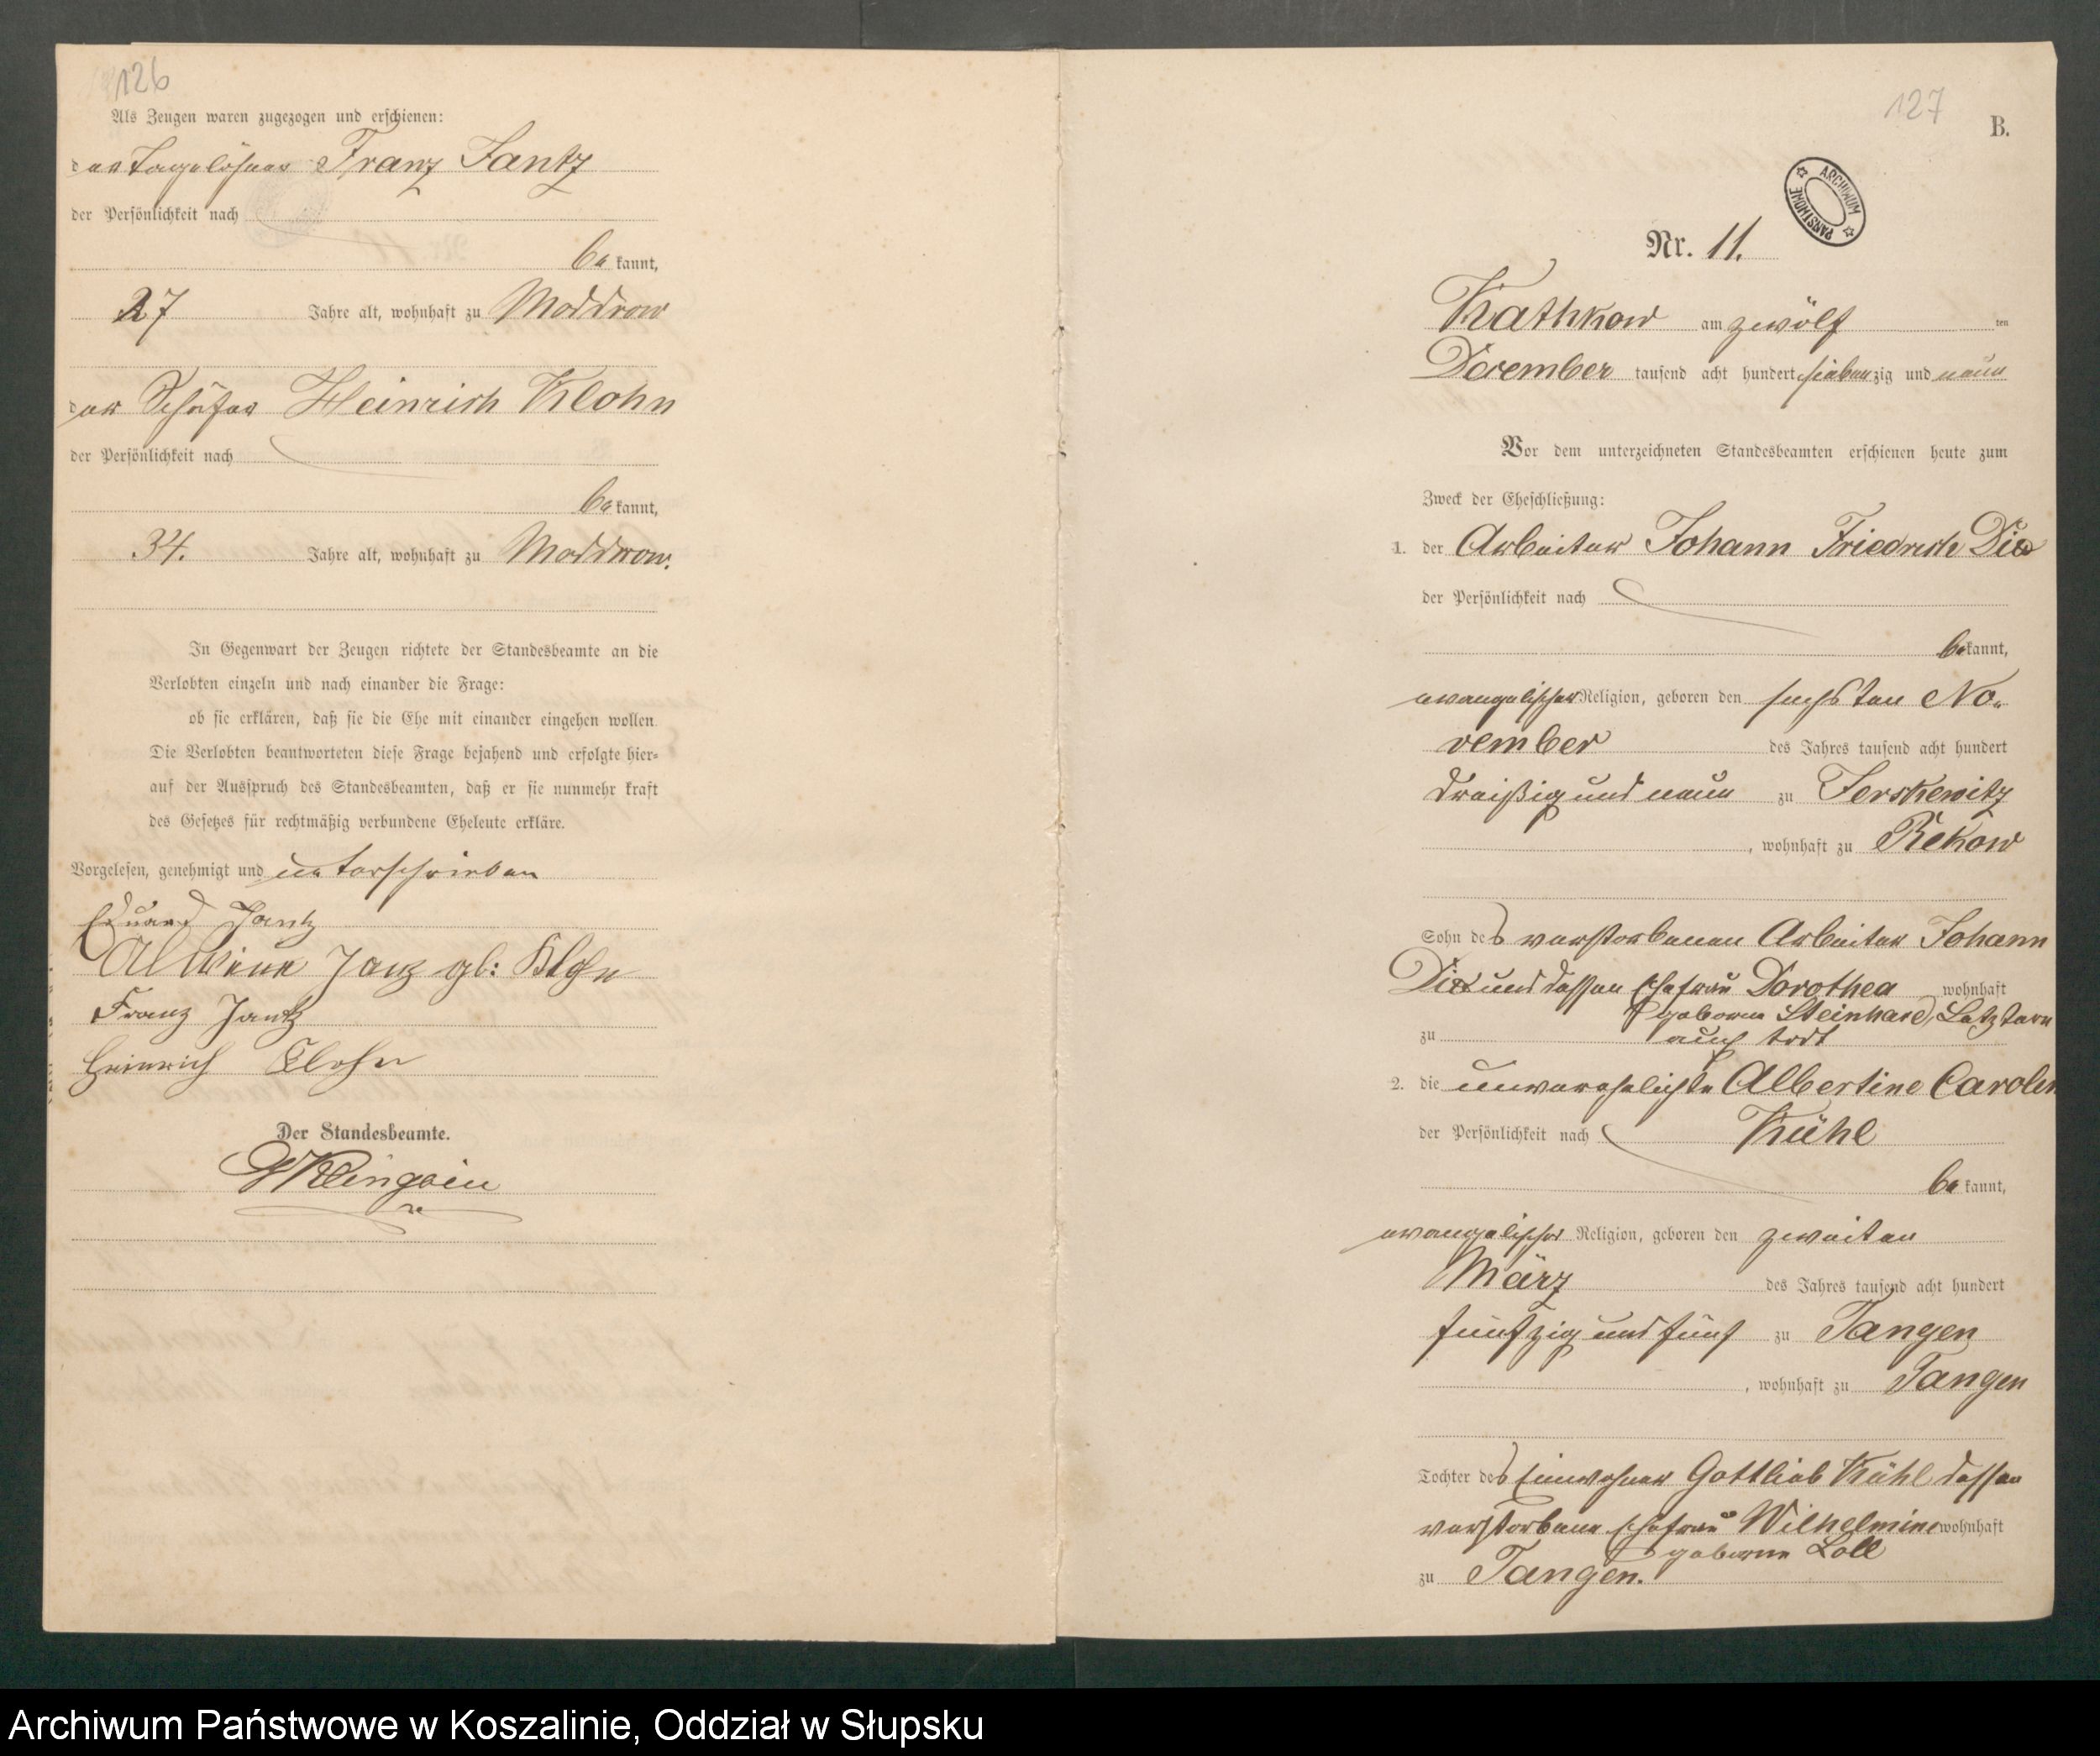 126
Als Zeugen waren zugezogen und erschienen:
der Tagelöhner Franz Jantz
der Persönlichkeit nach
be kannt,
27 Jahre alt, wohnhaft zu Moddrow
der Schäfer Heinrich Klohn
der Persönlichkeit nach
be kannt,
34. Jahre alt, wohnhaft zu Moddrow.
In Gegenwart der Zeugen richtete der Standesbeamte an die
Verlobten einzeln und nach einander die Frage:
ob sie erklären, daß sie die Ehe mit einander eingehen wollen.
Die Verlobten beantworteten diese Frage bejahend und erfolgte hier-
auf der Ausspruch des Standesbeamten, daß er sie nunmehr kraft
des Gesetzes für rechtmäßig verbundene Eheleute erkläre.
Vorgelesen, genehmigt und unterschrieben
Eduard Jantz
Allwine Janz gb: Klohn
Franz Jantz
Heinrich Klohn
Der Standesbeamte.
127
B.
ARCHIWUM PAŃSTWOWE
Nr. 11.
Kathkow am zwölf ten
December tausend acht hundert siebenzig und neun
Vor dem unterzeichneten Standesbeamten erschienen heute zum
Zweck der Eheschließung:
1. der Arbeiter Johann Friedrich
der Persönlichkeit nach
bekannt,
evangelischer Religion, geboren den sechsten No-
vember des Jahres tausend acht hundert
dreißig und neun zu Jerskewitz
, wohnhaft zu Rekow
Sohn des verstorbenen Arbeiter Johann
und dessen Ehefrau Dorothea wohnhaft
geborne Letztere
zu auch todt
2. die unverehelichte Albertine Carolin
der Persönlichkeit nach Kühl
be kannt,
evangelischer Religion, geboren den zweiten
März des Jahres tausend acht hundert
fünfzig und fünf zu Tangen
, wohnhaft zu Tangen
Tochter des Einwohner Gottlieb Kühl dessen
verstorbene Ehefrau Wilhelmine wohnhaft
geborne Loll
zu Tangen.
Archiwum Państwowe w Koszalinie, Oddział w Słupsku